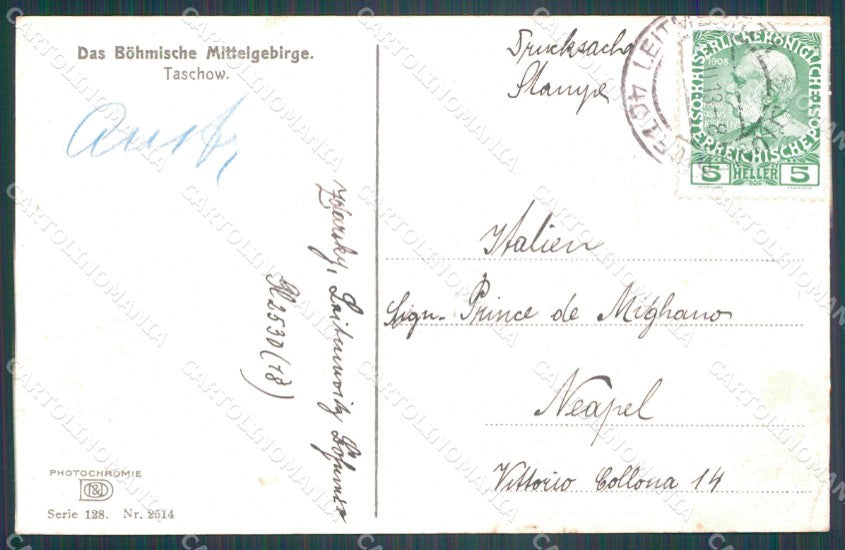 Das Böhmische Mittelgebirge.
Taschow.
Drucksache
Stampe
LEITM
1908
KAISERLICHE KÖNIGLICHE
OESTERREICHISCHE POST
5 HELLER 5
Italien
Sign. Prince de Mighano
Neapel
Vittorio Collona 14
Zdarsky, Leitmeritz Böhmen
Kl 2530 (18)
PHOTOCHROMIE
Serie 128. Nr. 2514
CARTOLINOMANIA